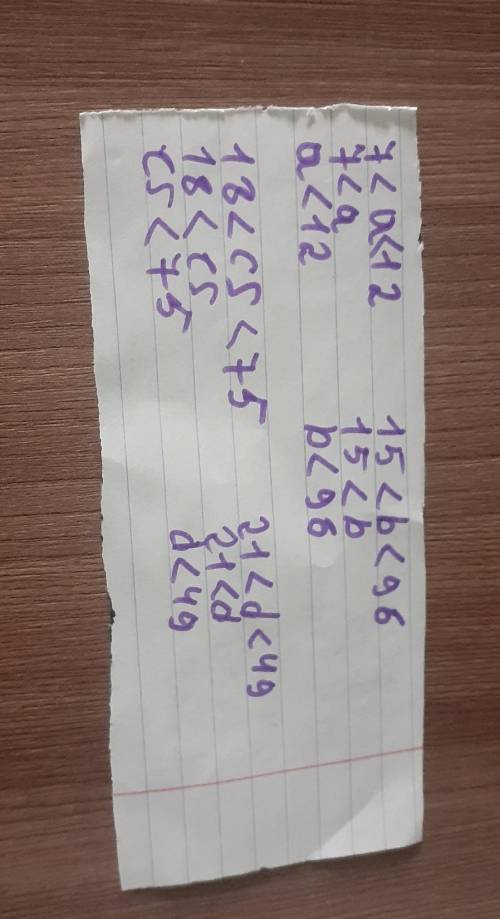 7<a<12
7<a
a<12
15<b<96
15<b
b<96
18<c5<75
18<c5
c5<75
21<d<49
21<d
d<49